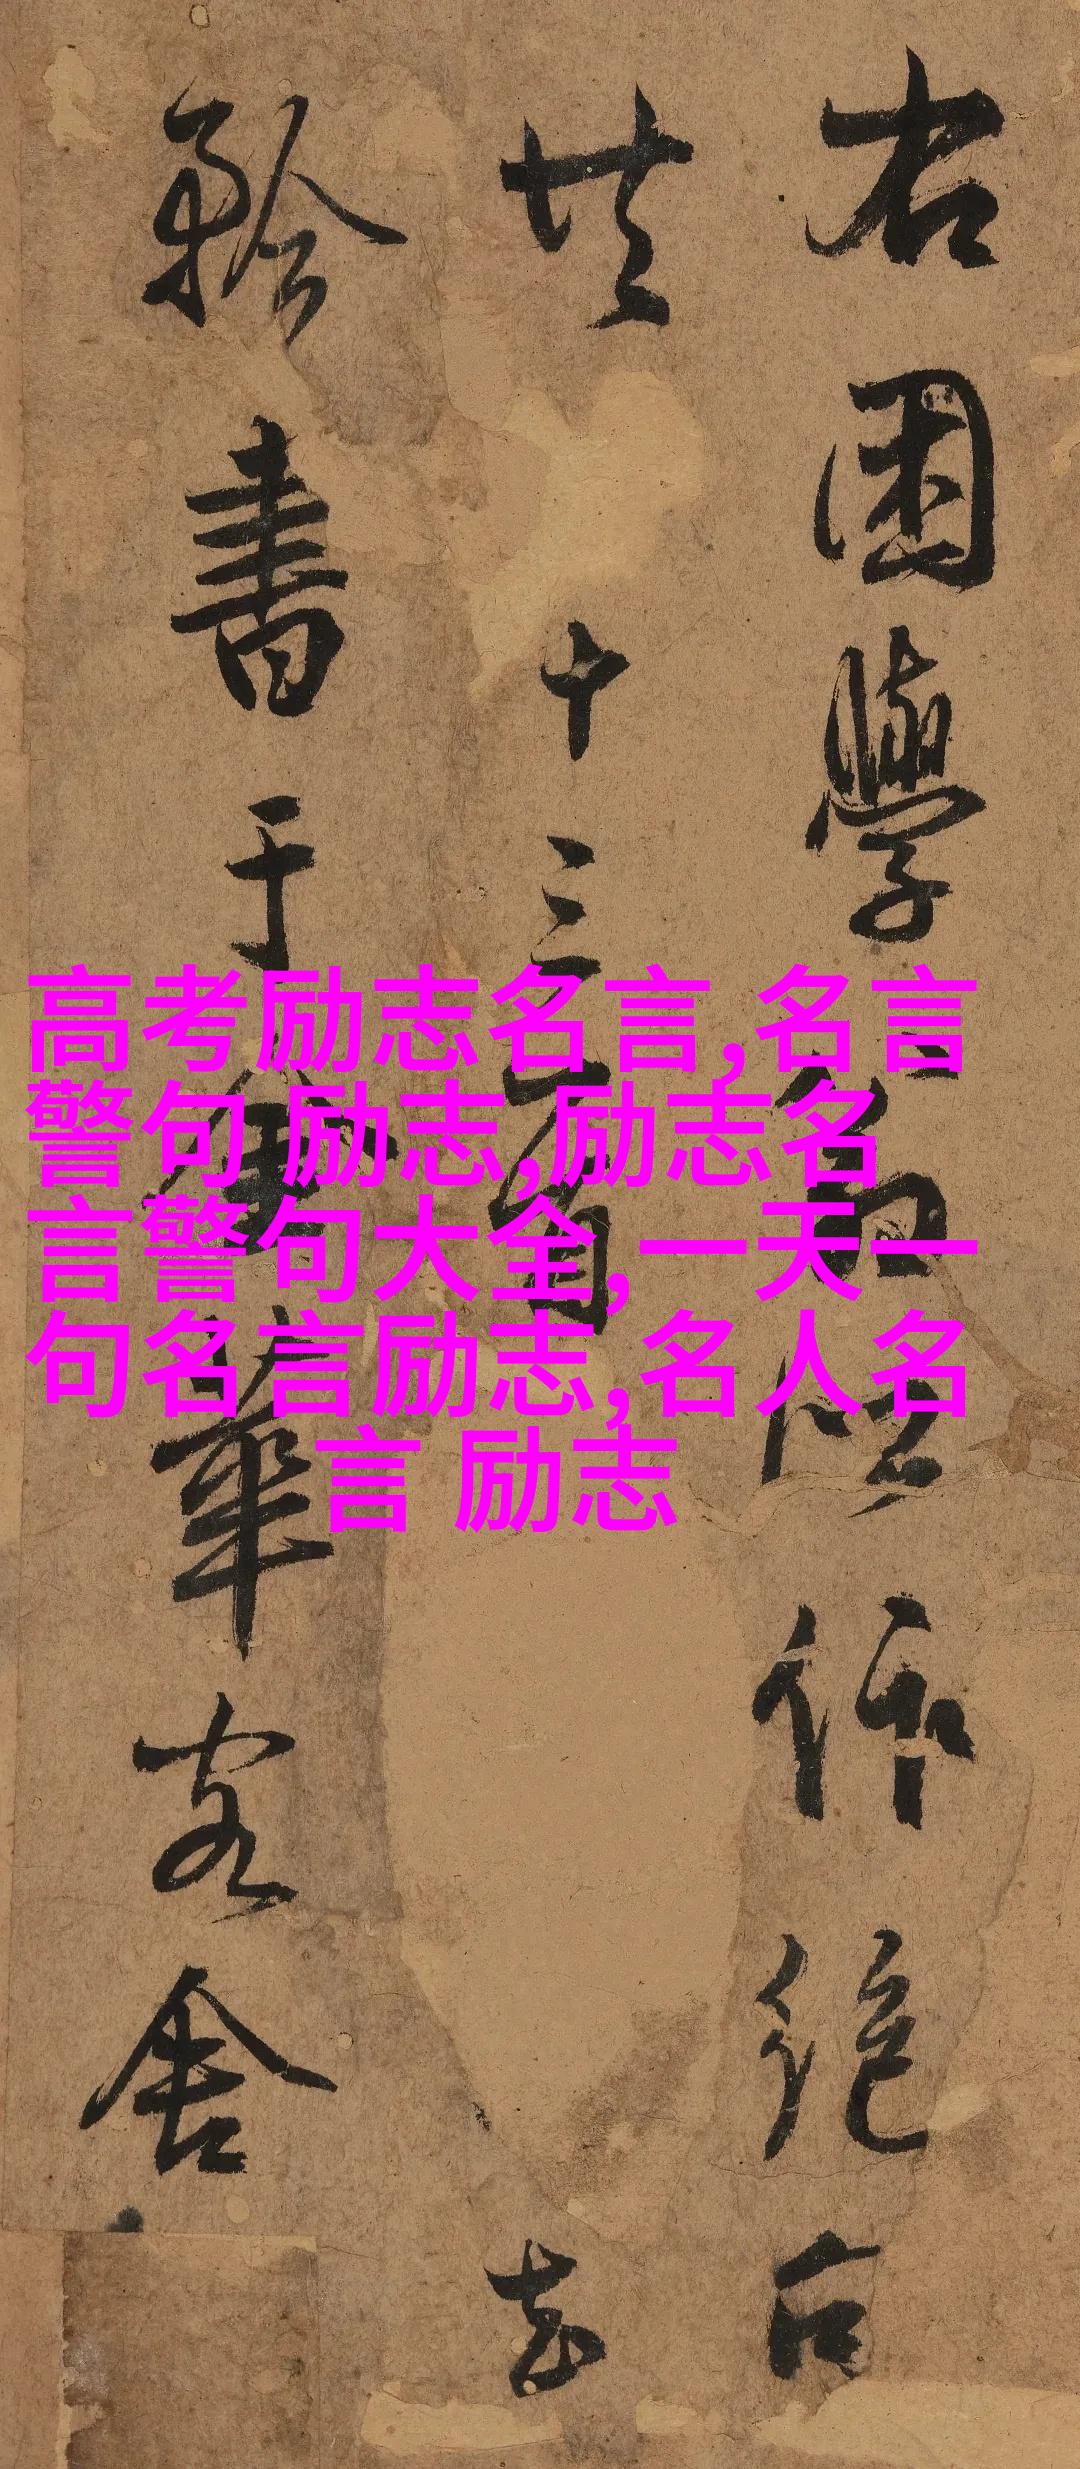 右困學作絶句
共十三首志
書于華客舍
高考励志名言,名言
警句 励志,励志名
言警句大全, 一天一
句名言励志,名人名
言 励志